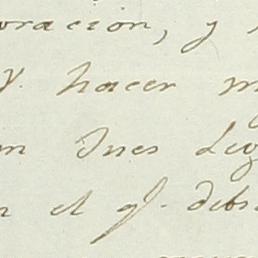 oracion, y
y. hacer m
n Ines Leg
n el qͤ. debi